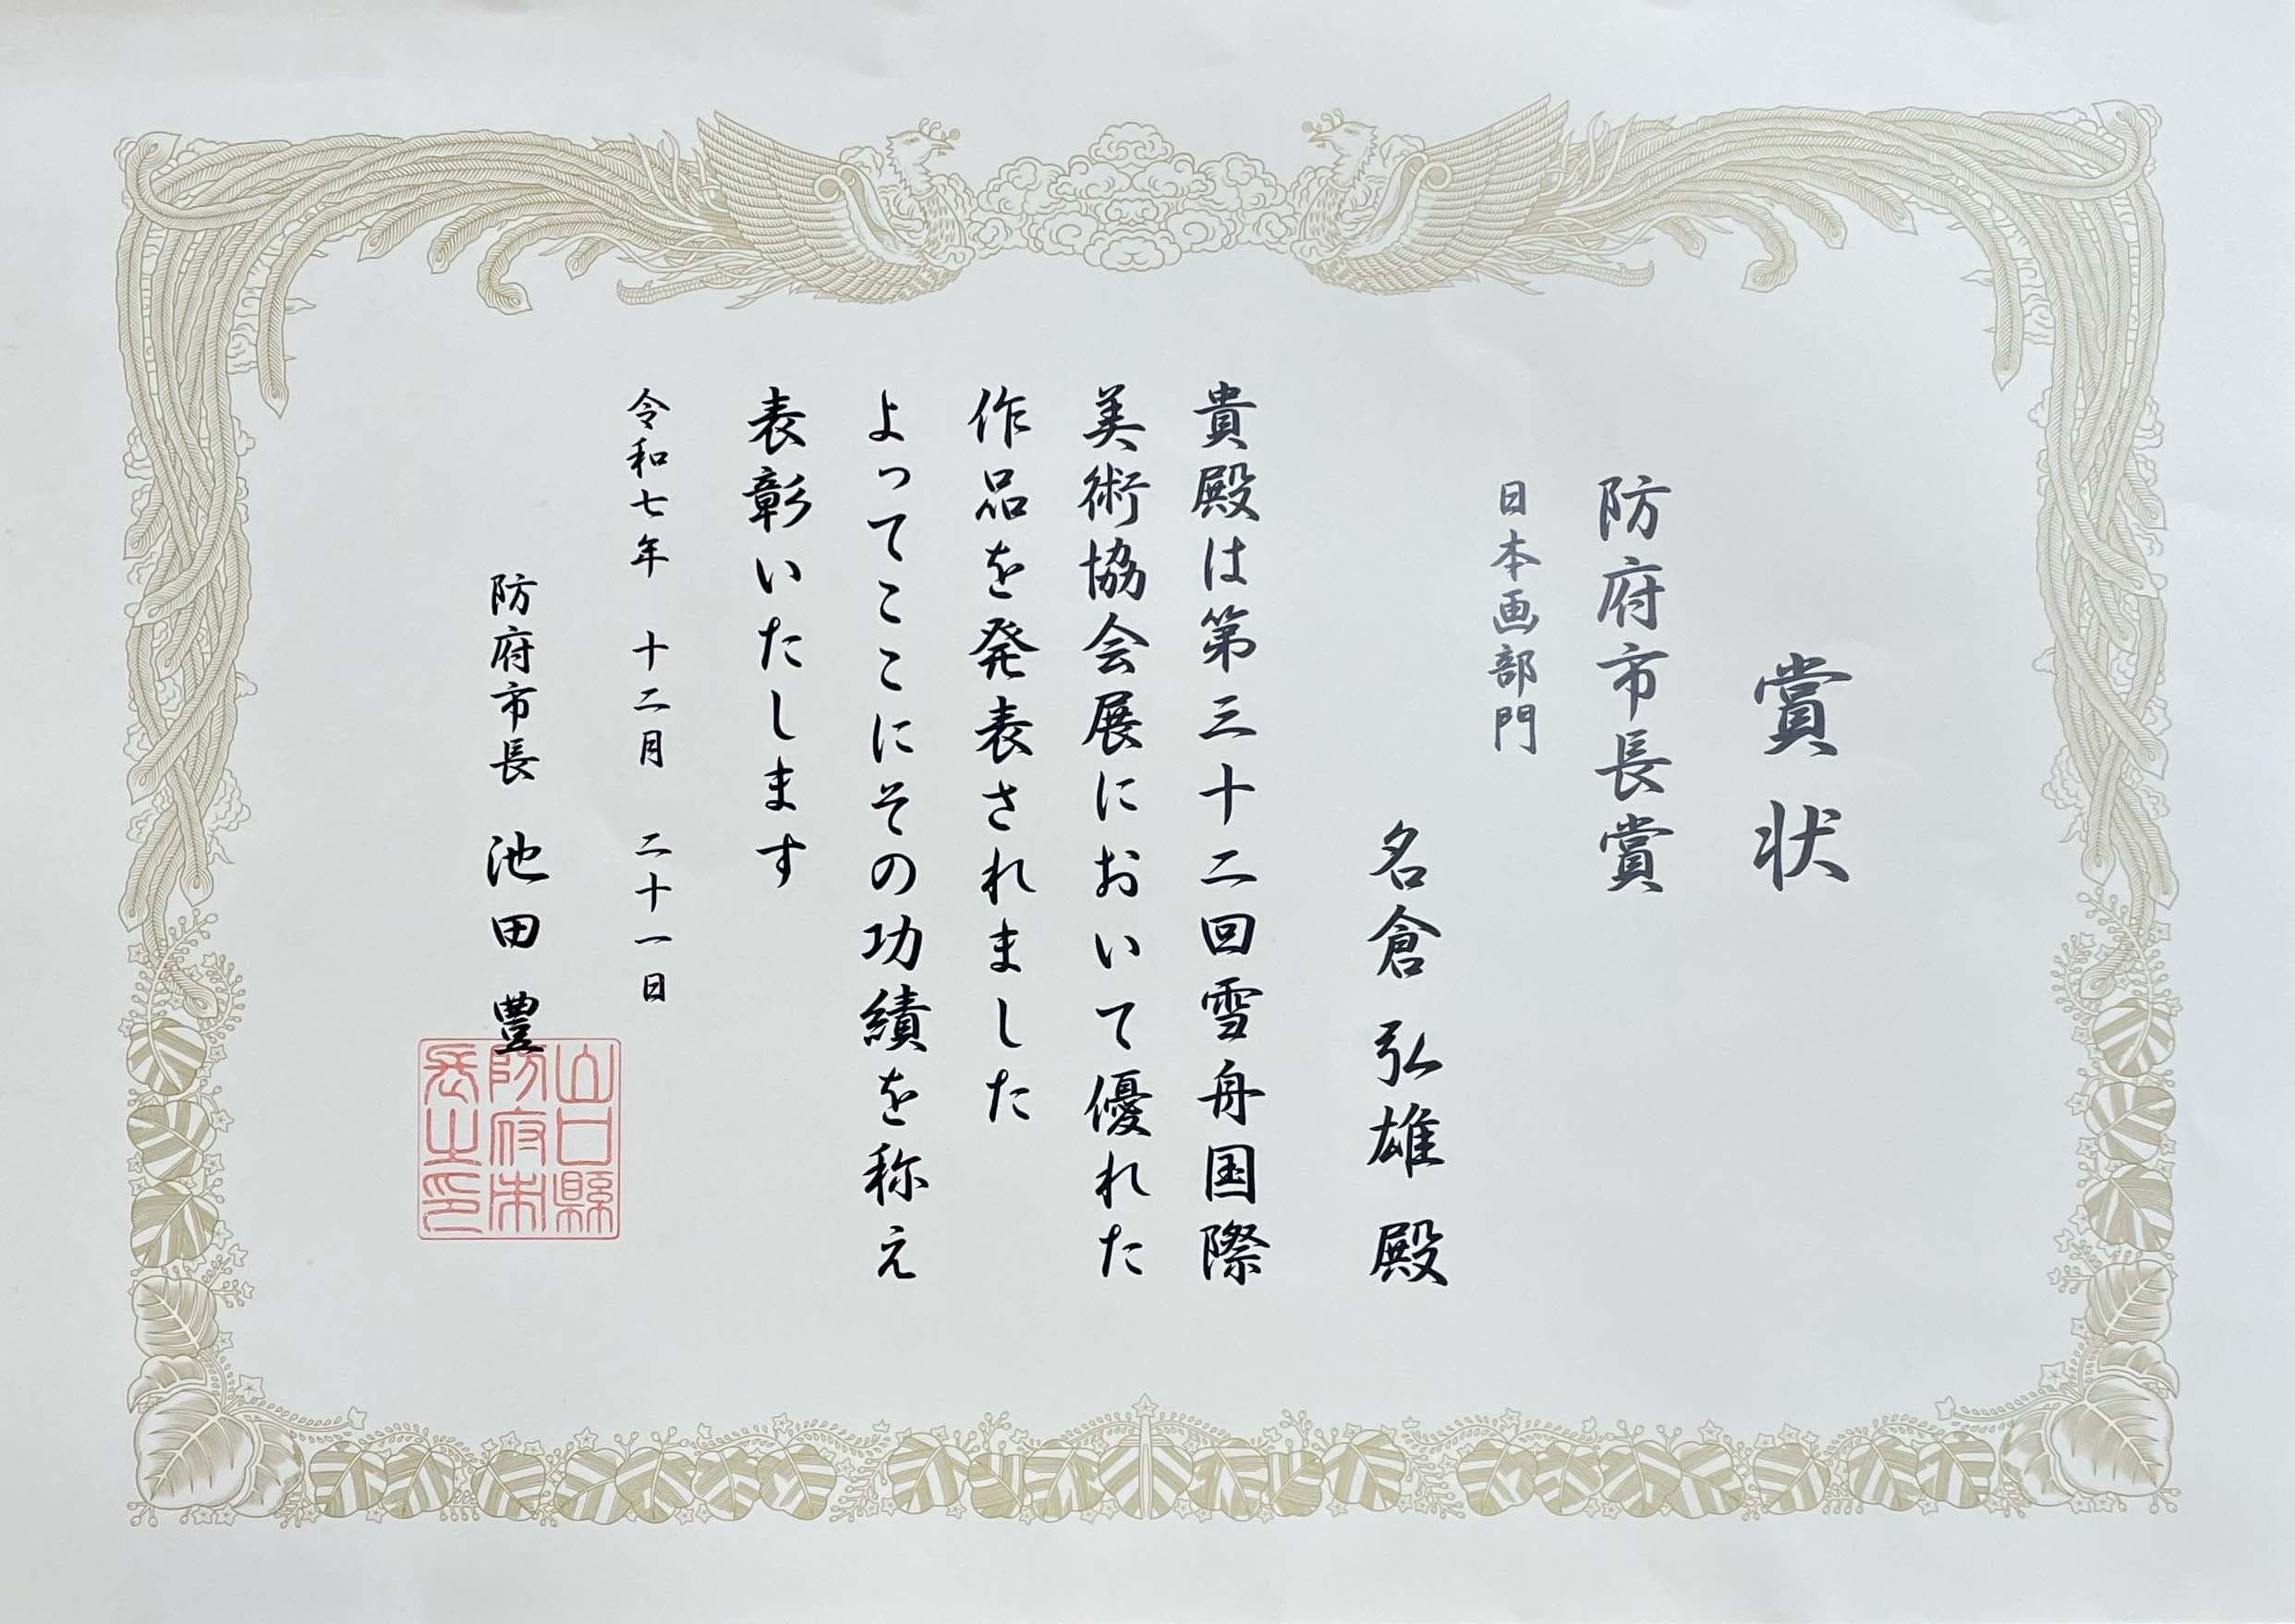 賞状
防府市長賞
日本画部門
名倉弘雄殿
貴殿は第三十二回雪舟国際
美術協会展において優れた
作品を発表されました
よってここにその功績を称え
表彰いたします
令和七年 十二月 二十一日
防府市長 池田 豊
山口縣
防府市
長之印